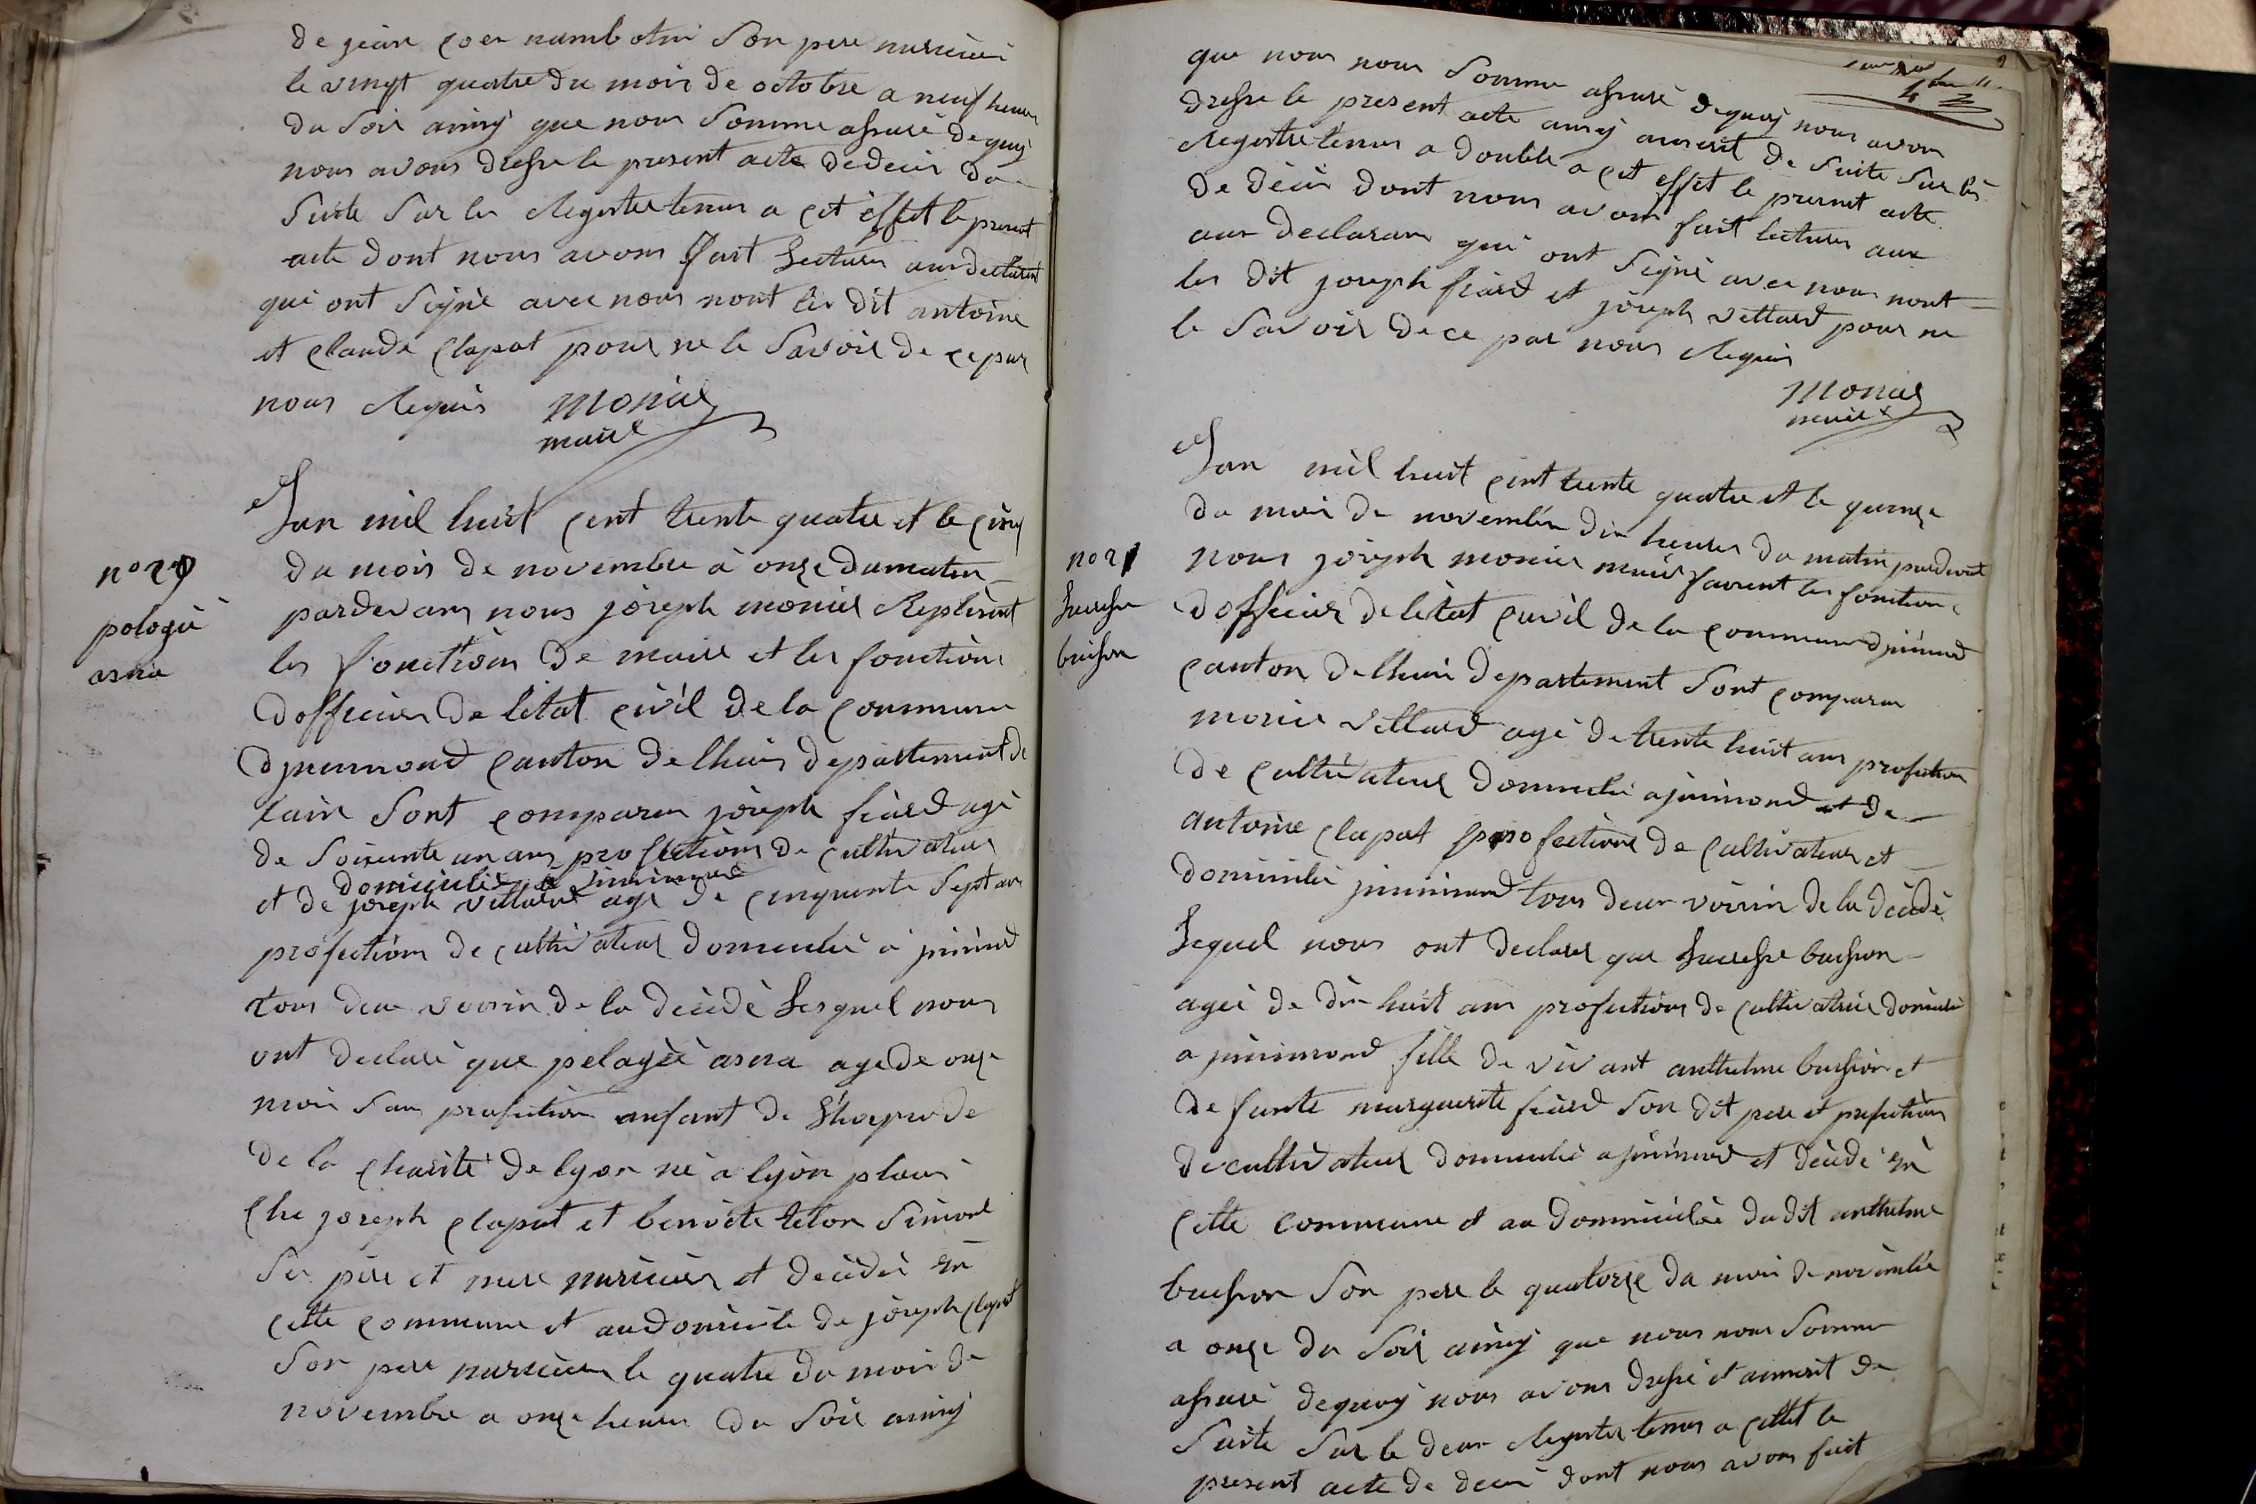 de jean poer numb otin Son pere nuricier
le vingt quatre du mois de octobre a neuf heure
du Soir ainsy que nous Somme assuré de quoy
nous avons dressé le present acte de decès de
Suite Sur les Registre tenus a cet éffet le present
acte dont nous avons fait Lecture aux declarent
qui ont Signé avec nous nont les dit antoine
et claude clapot pour ne le Savoir de ce par
nous Requis monier
maire
n° 29
pologié
asnia
Lan mil huit cent trente quatre et le cinq
du mois de novembre à onze du matin
pardevant nous jòseph mònier Replisent
les fonctions de maire et les fonctions
dofficier de létat civil de la commune
djnimond canton de lhuis departement de
lain Sont comparu jòseph fiard agé
de Soixante un ans profection de cultivateur
domiciulié a jinimond
et de joseph vettard age de cinquente Sept an
profection de cultivateur domiculié à jinimd
tous deux voisin de la décédé Lesquel nous
ont declaré que pelagée asnia age de onze
mois San profection enfant de L'hospice de
de la charité de lyon né a lyòn placé
che joseph clapot et benoite teton Simond
Ses père et mere nuricier et décédé en
cette commune et au domicile de jòseph clapot
Son pere nuricier le quatre du mois de
novembre a onze heures du Soir ainsy
que nous nous Somme assuré dequoy nous avon
dresse le present acte ainsy inscrit de Suite Sur les
Registre tenus a double a cet effet le present acte
de décès dont nous avons fait lecture aux
aux declarans qui ont Signé avec nous nont
les dit joseph fiard et jòseph vettard pour ne
le Savoir de ce par nous Requis
monier
maire
no 21
Lucresse
buisson
Lan mil huit cent trente quatre et le quinze
du mois de novembre dix heures du matin pardevant
nous jòseph monier maire faisent les fonction
dofficier de létat cuvil de la commune djinimd
canton de lhuis departement Sont comparu
monier vettard agé de trente huit ans profection
de cultivateur domiculié a jinimond et de
antoine clapot profection de cultivateur et
domiculié jinimond tous deux voisin de la décédé
Lequel nous ont declarer que Lucresse buisson
agée de dix huit ans profection de cultivatrice domiculié
a jinimond fille de vivant anthelme buisson et
de funte marguerite fiard Son dit pere et profection
de cultivateur domiculié a jinimond et décédé en
cette commune et au domiciulée du dit anthelme
buisson Son pere le quatorze du mois de novembre
a onze du Soir ainsy que nous nous Somme
assuré dequoy nous avons dressé et ainscrit de
Suite Sur le deux Registres tenus a cettet le
present acte de decès dont nous avons fait